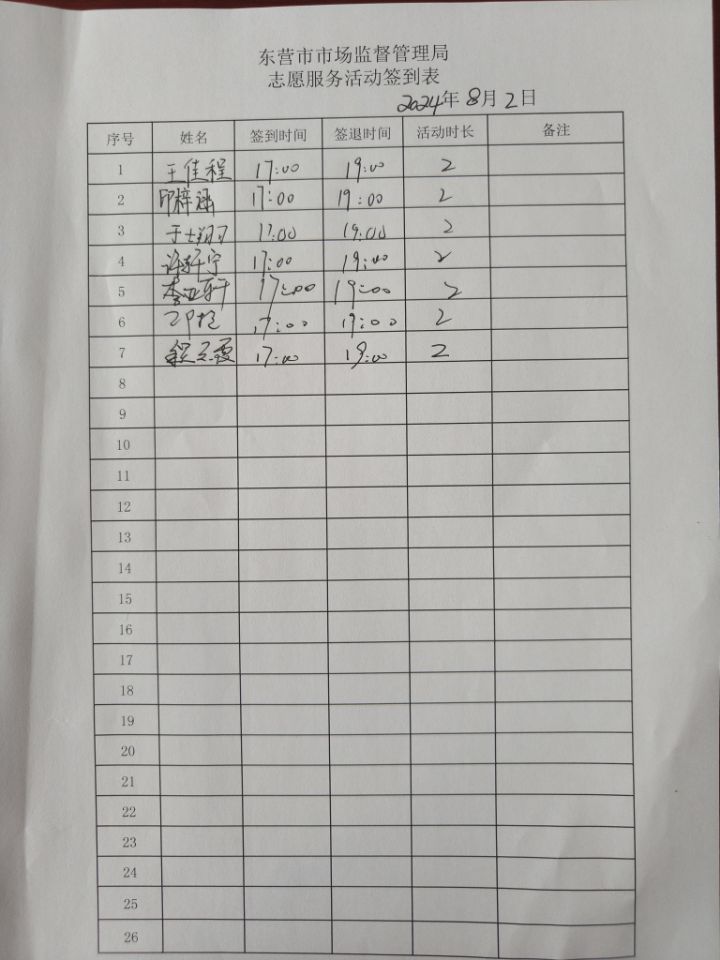 东营市市场监督管理局
志愿服务活动签到表
2024年 8月 2日
序号 姓名 签到时间 签退时间 活动时长 备注
1 于佳程 17:00 19:00 2
2 印梓涵 17:00 19:00 2
3 于士翔 17:00 19:00 2
4 许轩宁 17:00 19:00 2
5 李亚轩 17:00 19:00 2
6 17:00 19:00 2
7 17:00 19:00 2
8
9
10
11
12
13
14
15
16
17
18
19
20
21
22
23
24
25
26